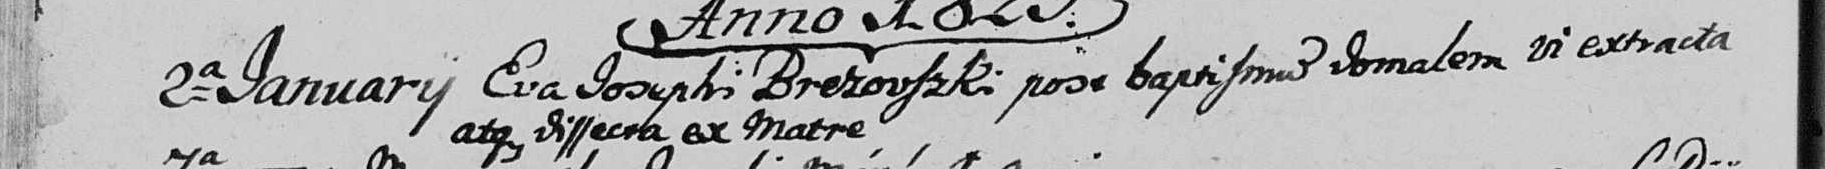 Anno 1825.
2ª Januarij Eva Josephi Brezovszki post baptismũ domalem vi extracta
atq, dissecta ex Matre
7ª